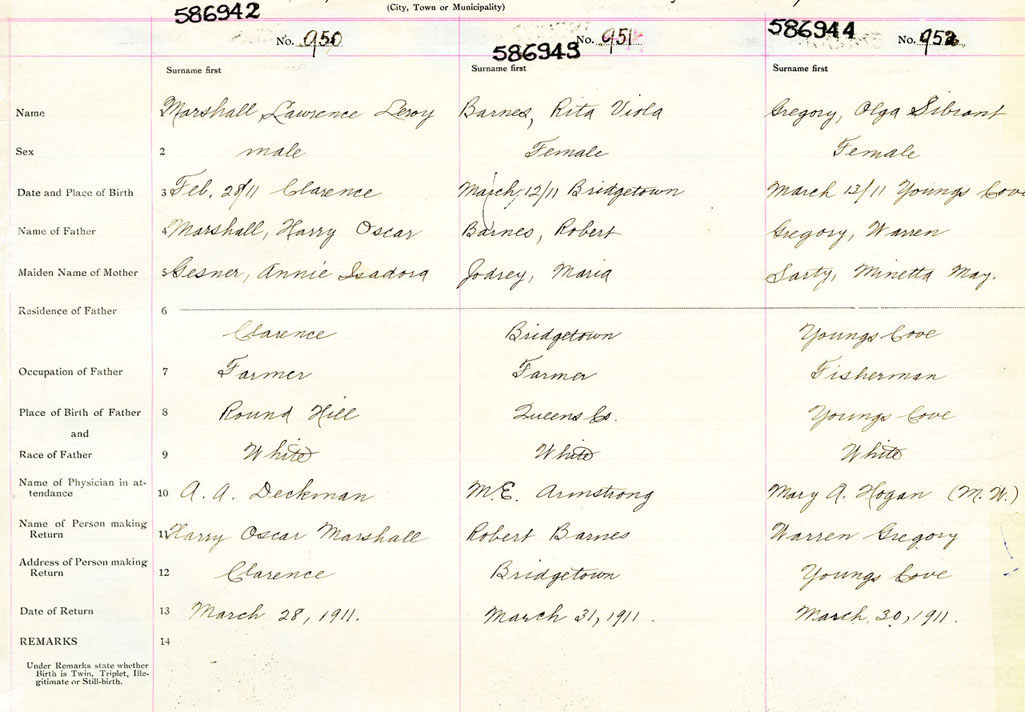 (City, Town or Municipality)
586942 586943 586944
No. 950 No. 951 No. 952
Surname first Surname first Surname first
Name Marshall, Lawrence Leroy Barnes, Rita Viola Gregory, Olga Sibrant
Sex 2 male Female Female
Date and Place of Birth 3 Feb. 28/11 Clarence March, 12/11 Bridgetown March 13/11 Youngs Cove
Name of Father 4 Marshall, Harry Oscar Barnes, Robert Gregory, Warren
Maiden Name of Mother 5 Gesner, Annie Isadora Jodrey, Maria Sarty, Minetta May.
Residence of Father 6
Clarence Bridgetown Youngs Cove
Occupation of Father 7 Farmer Farmer Fisherman
Place of Birth of Father 8 Round Hill Queens Co. Youngs Cove
and
Race of Father 9 White White White
Name of Physician in at-
tendance 10 A. A. Deckman M.E. Armstrong Mary A. Hogan (M.W.)
Name of Person making
Return 11 Harry Oscar Marshall Robert Barnes Warren Gregory
Address of Person making
Return 12 Clarence Bridgetown Youngs Cove
Date of Return 13 March 28, 1911. March 31, 1911. March. 30, 1911.
REMARKS 14
Under Remarks state whether
Birth is Twin, Triplet, Ille-
gitimate or Still-birth.